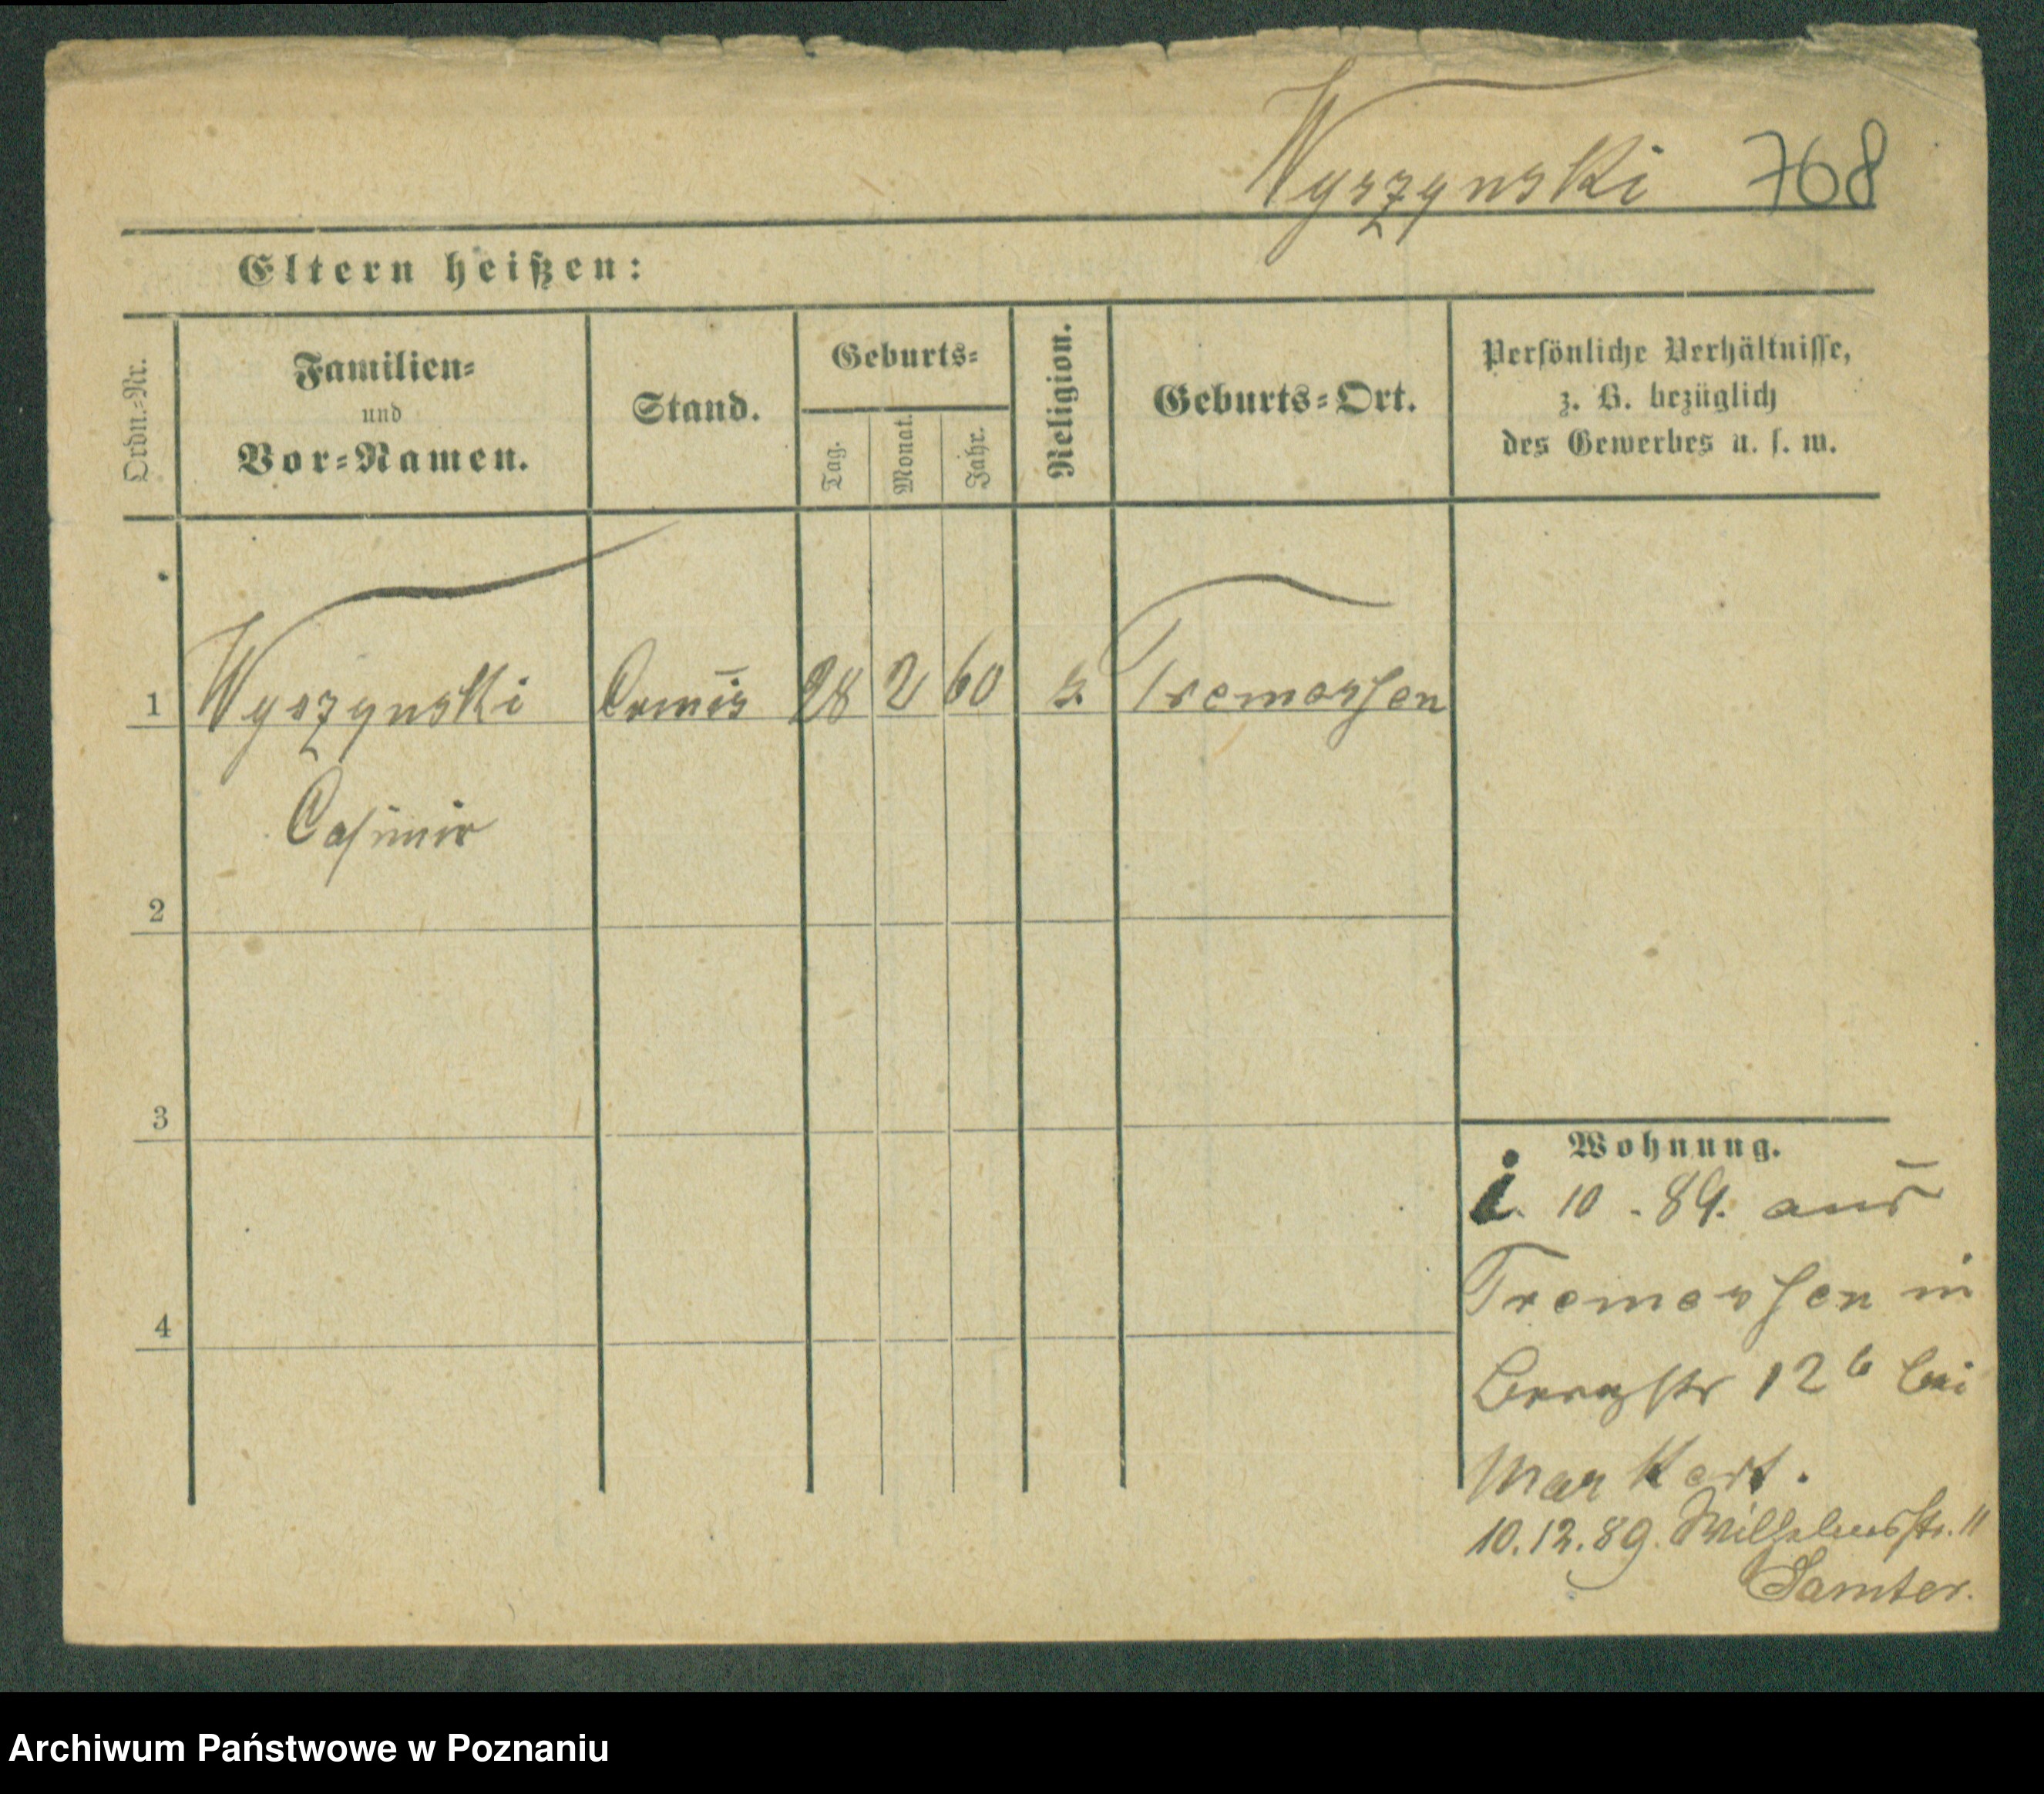 Wyszynski 768
Eltern heißen:
Ordn.-Nr.
Familien-
und
Vor-Namen.
Stand.
Geburts-
Tag.
Monat.
Jahr.
Religion.
Geburts-Ort.
Persönliche Verhältnisse,
z. B. bezüglich
des Gewerbes u. s. w.
1 Wyszynski Commis 28 2 60 k. Tremessen
Casimir
2
3
4
Wohnung.
10 . 89. aus
Tremessen in
Bergstr 12b bei
Markert.
10.12.89. Wilhelmsstr. 11
Samter.
Archiwum Państwowe w Poznaniu